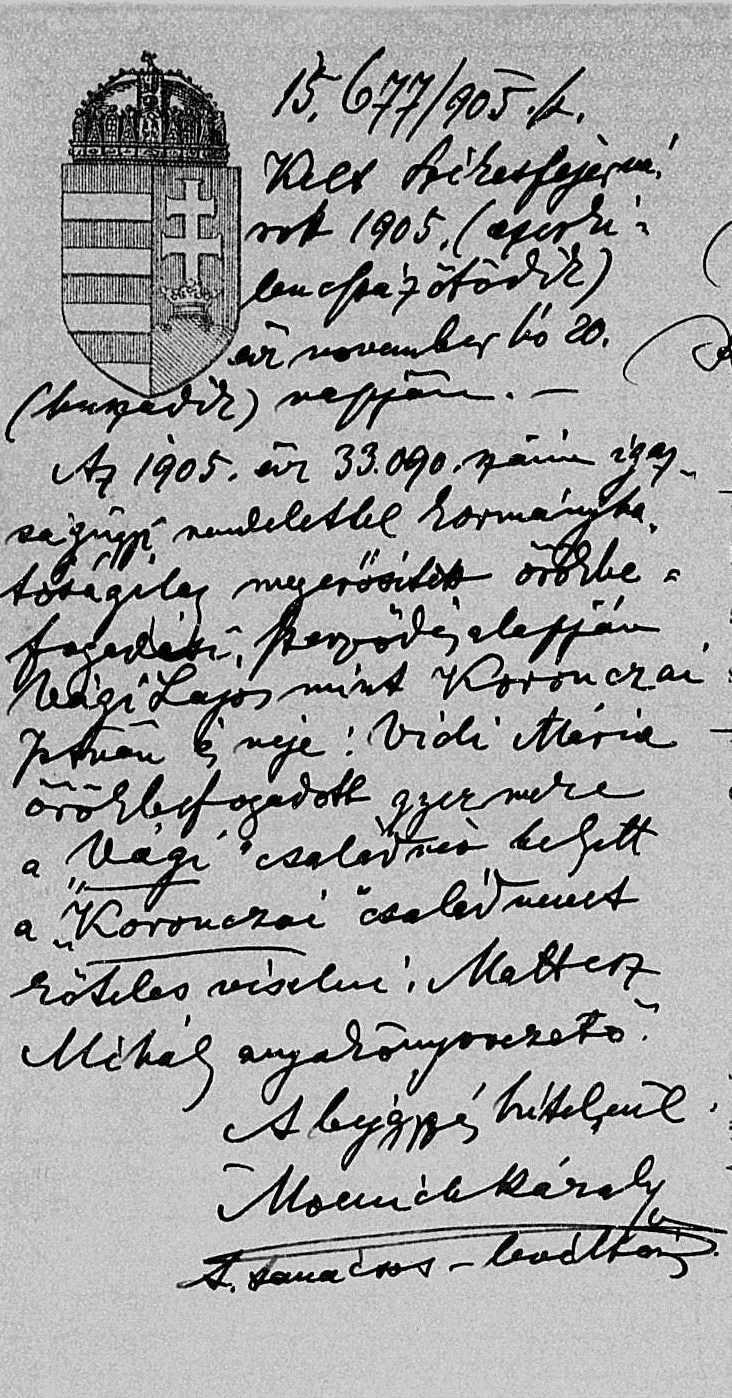 15.677/905.k.
Kelt Székesfejérvá-
rott 1905. (ezerki-
lenczszázötödik)
évi november hó 20.
(huszadik) napján. —
Az 1905. évi 33.090. számú igaz-
ságügyi rendelettel kormányha-
tóságilag megerősített örökbe-
fogadási szerződés alapján
Vági Lajos mint Koronczai
István és neje: Vidi Mária
örökbefogadott gyermeke
a „Vági“ családnév helyett
a „Koronczai“ családnevet
köteles viselni. Mattesz
Mihály anyakönyvvezető.
A bejegyzés hiteléül
Károly
t. tanácsos - levéltáros